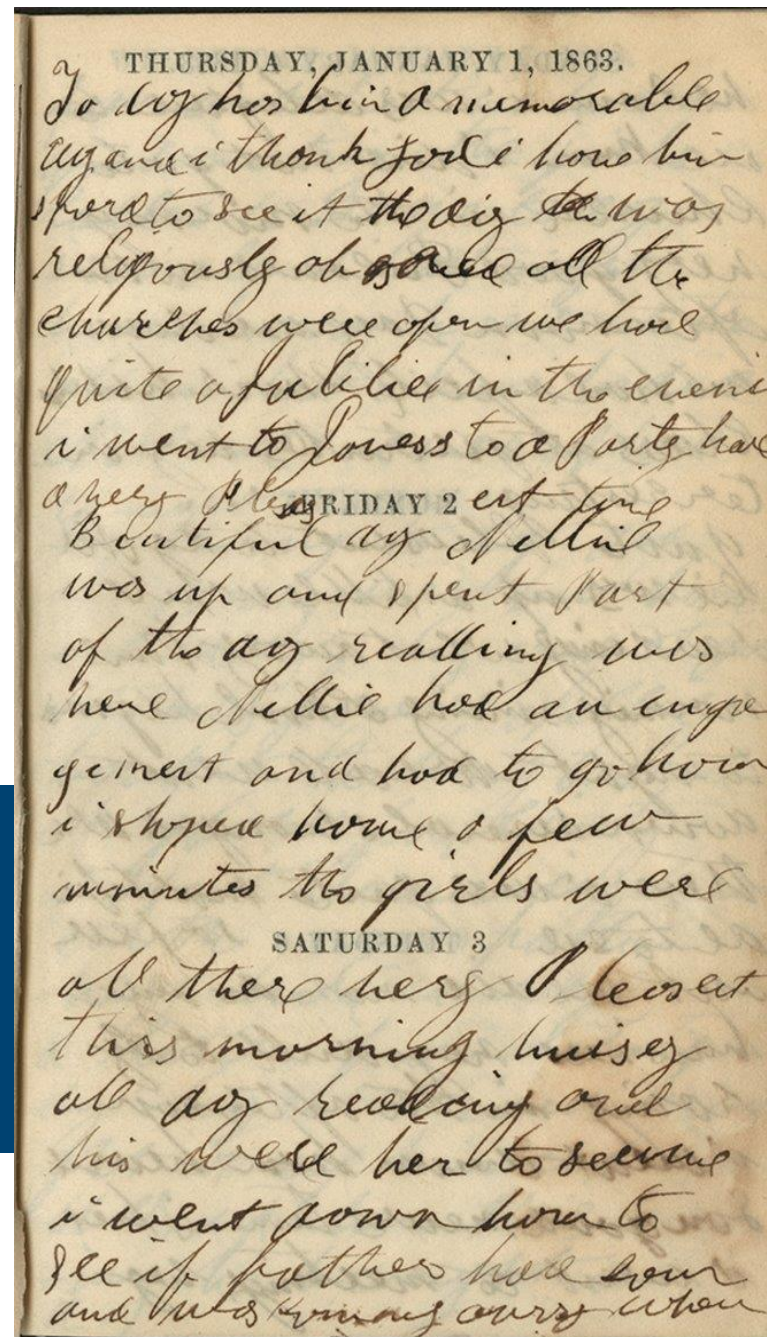 THURSDAY, JANUARY 1, 1863.
To day has bin a memorable
day and i thank God i have bin
spard to see it the day was
religiously observed all the
churches were open we had
quite a Jubilie in the eveni
i went to Joness to a Party had
a very Pleasent time
FRIDAY 2
Beutiful day Nellie
was up and spent Part
of the day reading was
here Nellie had an enga
gement and had to go hom
i stoped home a few
minutes the girls were
SATURDAY 3
all there very Pleasent
this morning buisey
all day reading and
his were her to see me
i went down hom to
see if father had
and was away when